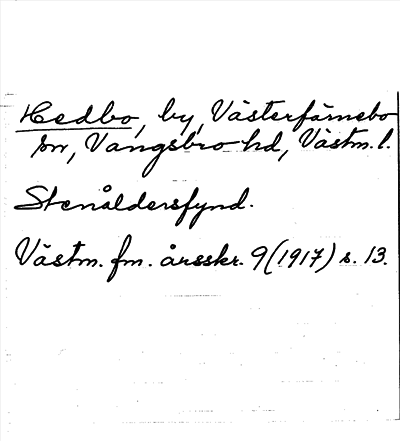 Hedbo, by, Västerfärnebo
sn, Vangsbro hd, Västm. l.
Stenåldersfynd.
Västm. fm. årsskr. 9 (1917) s. 13.